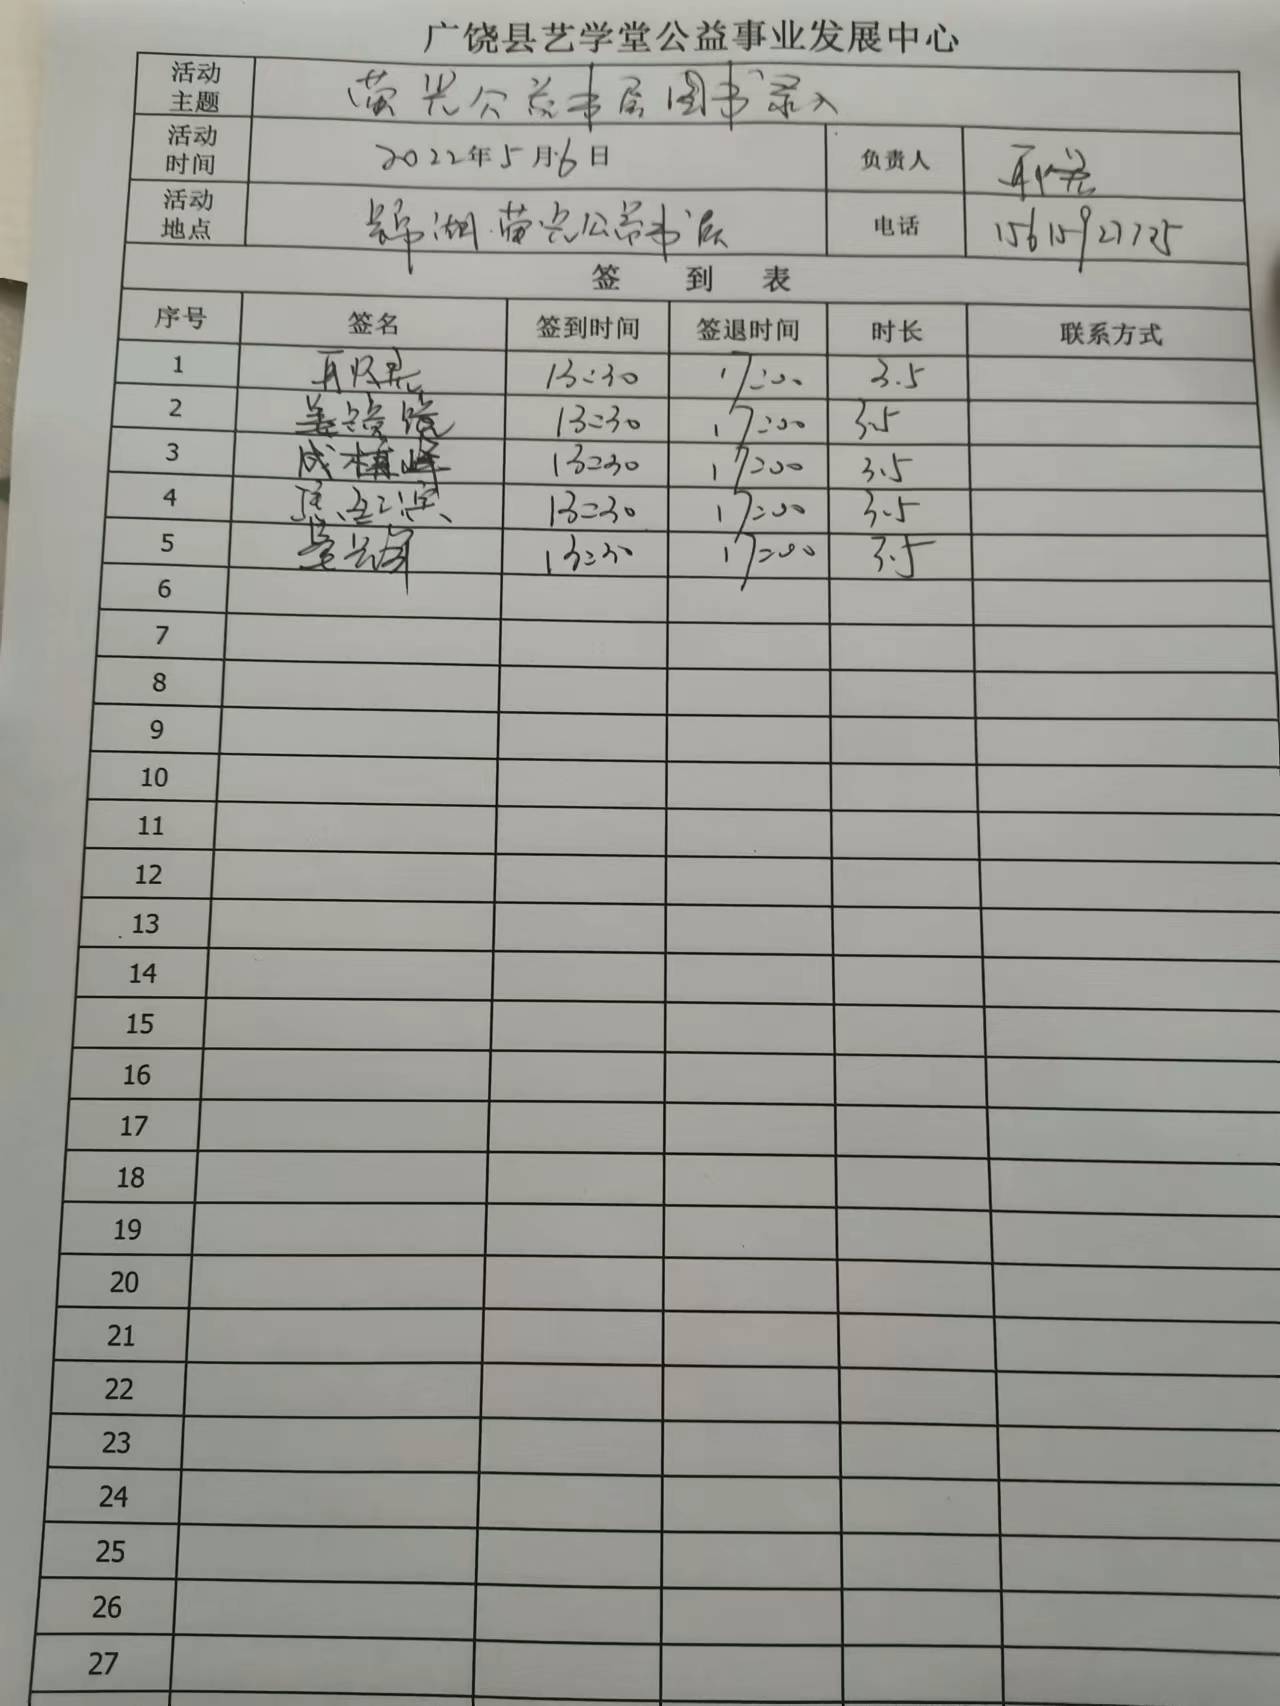 广饶县艺学堂公益事业发展中心
活动主题 萤光公益书屋图书录入
活动时间 2022年5月6日 负责人
活动地点 锦湖·萤光公益书屋 电话
签 到 表
序号 签名 签到时间 签退时间 时长 联系方式
1 13:30 17:00 3.5
2 13:30 17:00 3.5
3 13:30 17:00 3.5
4 13:30 17:00 3.5
5 13:30 17:00 3.5
6
7
8
9
10
11
12
13
14
15
16
17
18
19
20
21
22
23
24
25
26
27